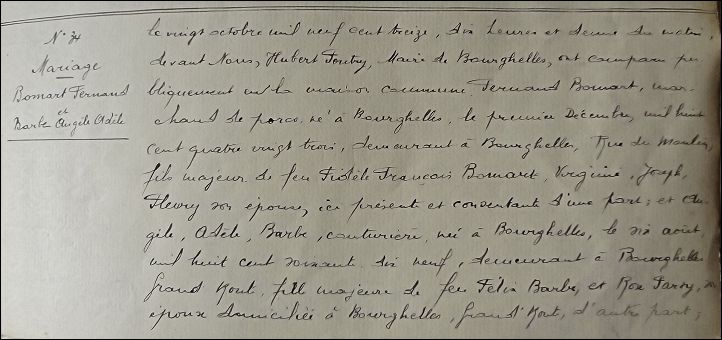 N° 34
Mariage
Bomart Fernand
et
Barbe Angèle Adèle
le vingt octobre mil neuf cent treize, dix heures et demie du matin,
devant Nous, Hubert Maire de Bourghelles, ont comparu pu
bliquement en la maison commune Fernand Bomart, mar
chand de porcs, né à Bourghelles, le premier Décembre, mil huit
cent quatre vingt trois, demeurant à Bourghelles, Rue du Moulin,
fils majeur de feu Fidèle François Bomart, Virginie, Joseph,
Fleury son épouse, ici présente et consentante d'une part; et An
gèle, Adèle, Barbe, couturière, née à Bourghelles, le six août
mil huit cent soixante dix neuf, demeurant à Bourghelles
Grand Mont, fille majeure de feu Félix Barbe, et Rose
épouse domiciliée à Bourghelles, Grand Mont, d'autre part;